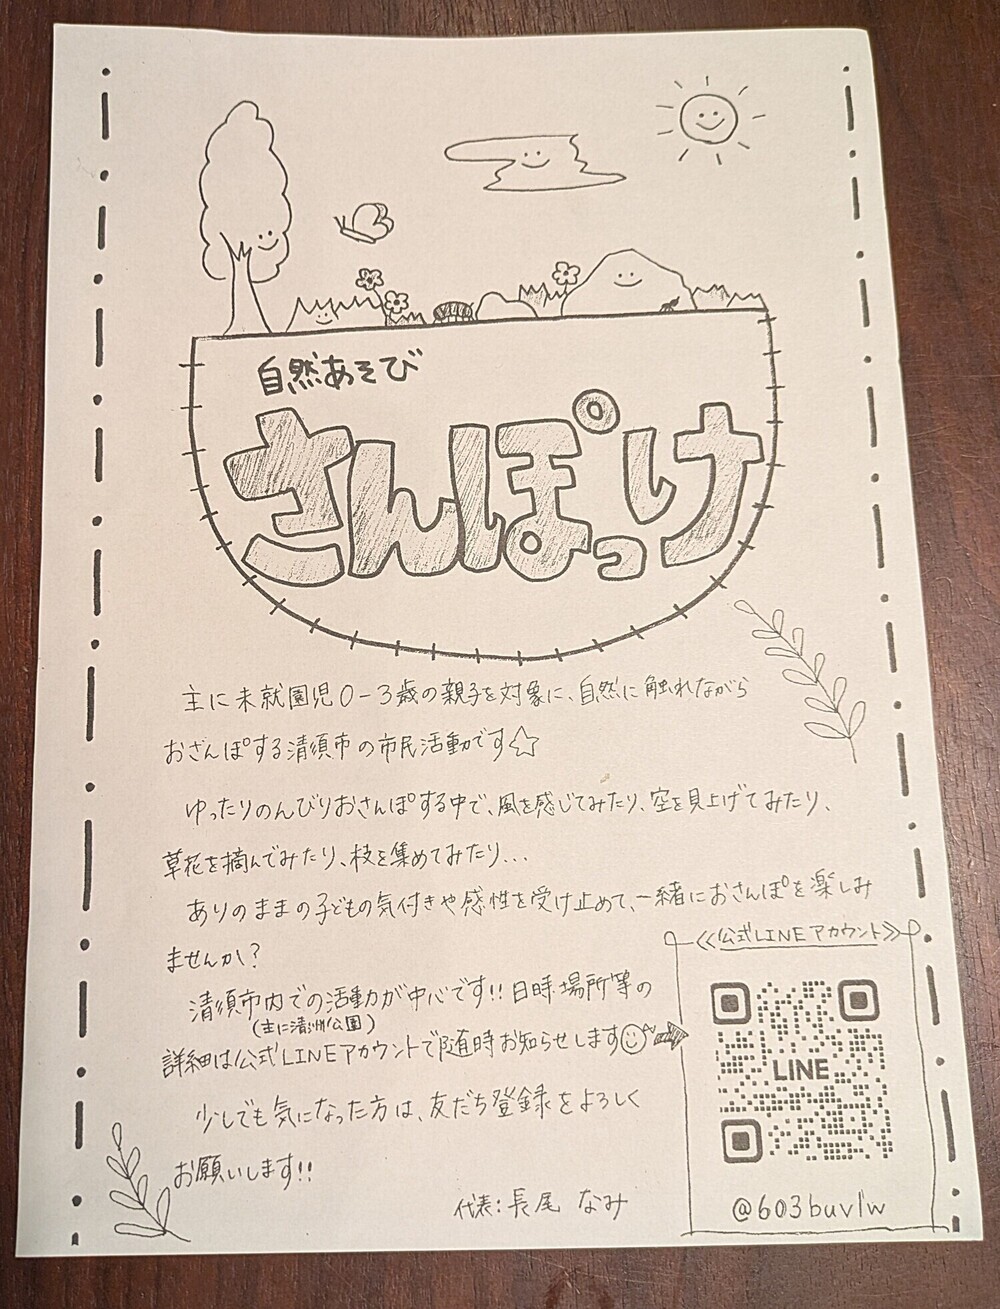 自然あそび
さんぽっけ
主に未就園児0-3歳の親子を対象に、自然に触れながら
おさんぽする清須市の市民活動です☆
ゆったりのんびりおさんぽする中で、風を感じてみたり、空を見上げてみたり、
草花を摘んでみたり、枝を集めてみたり...
ありのままの子どもの気付きや感性を受け止めて、一緒におさんぽを楽しみ
ませんか?
清須市内での活動が中心です!!日時・場所等の
(主に清洲公園)
詳細は公式LINEアカウントで随時お知らせします
少しでも気になった方は、友だち登録をよろしく
お願いします!!
代表:長尾 なみ
《公式LINEアカウント》
LINE
@603buvlw